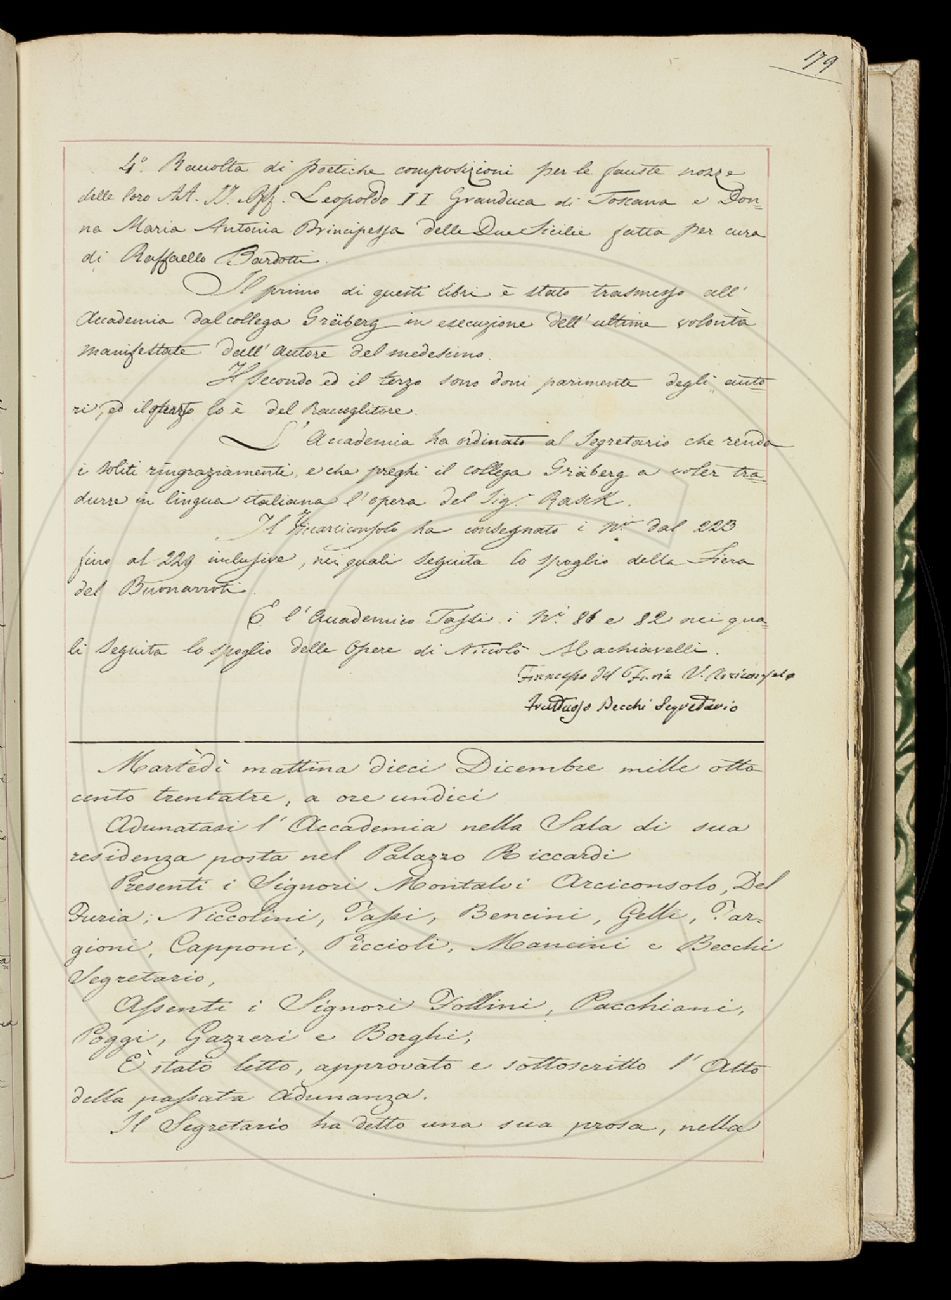 179
4.° Raccolta di poetiche composizioni per le fauste nozze
delle loro AA. II. RR. Leopoldo II Granduca di Toscana e Don=
na Maria Antonia Principessa delle Due Sicilie fatta per cura
di Raffaello Bardotti.
Il primo di questi libri è stato trasmesso all'
Accademia dal collega Gräberg in esecuzione dell'ultime volontà
manifestate dall'autore del medesimo.
Il secondo ed il terzo sono doni parimente degli auto=
ri, ed il quarto lo è del Raccoglitore.
L'Accademia ha ordinato al Segretario che renda
i soliti ringraziamenti, e che preghi il collega Gräberg a voler tra=
durre in lingua italiana l'opera del Sig.r Rask.
Il Vicearciconsolo ha consegnato i N.i dal 223
fino al 229 inclusive, nei quali seguita lo spoglio della Fiera
del Buonarroti.
E l'Accademico Tassi i N.i 81 e 82 nei qua=
li seguita lo spoglio delle Opere di Niccolò Machiavelli.
Francesco del Furia V. Arciconsolo
Fruttuoso Becchi Segretario
Martedì mattina dieci Dicembre mille otto
cento trentatre, a ore undici
Adunatasi l'Accademia nella Sala di sua
residenza posta nel Palazzo Riccardi
Presenti i Signori Montalvi Arciconsolo, Del
Furia, Niccolini, Tassi, Bencini, Gelli, Tar=
gioni, Capponi, Piccioli, Mancini e Becchi
Segretario,
Assenti i Signori Follini, Pacchiani,
Poggi, Gazzeri e Borghi,
È stato letto, approvato e sottoscritto l'Atto
della passata Adunanza.
Il Segretario ha detto una sua prosa, nella